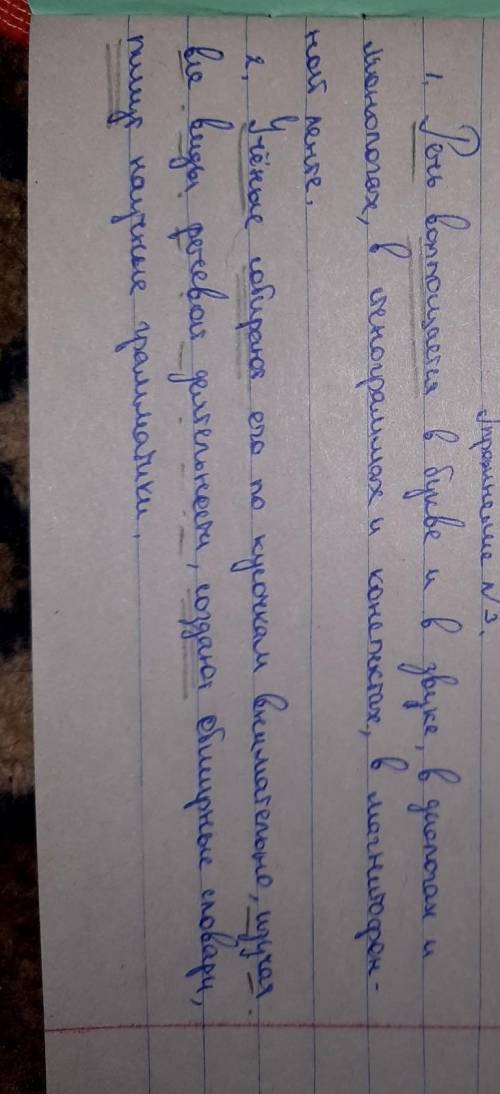 Упражнение №3.
1. Речь воплощается в букве и в звуке, в диалогах и
монологах, в стенограммах и конспектах, в магнитофон-
ной ленте.
2. Учёные собирают его по кусочкам внимательно, изучая
все виды речевой деятельности, создают обширные словари,
пишут научные грамматики.